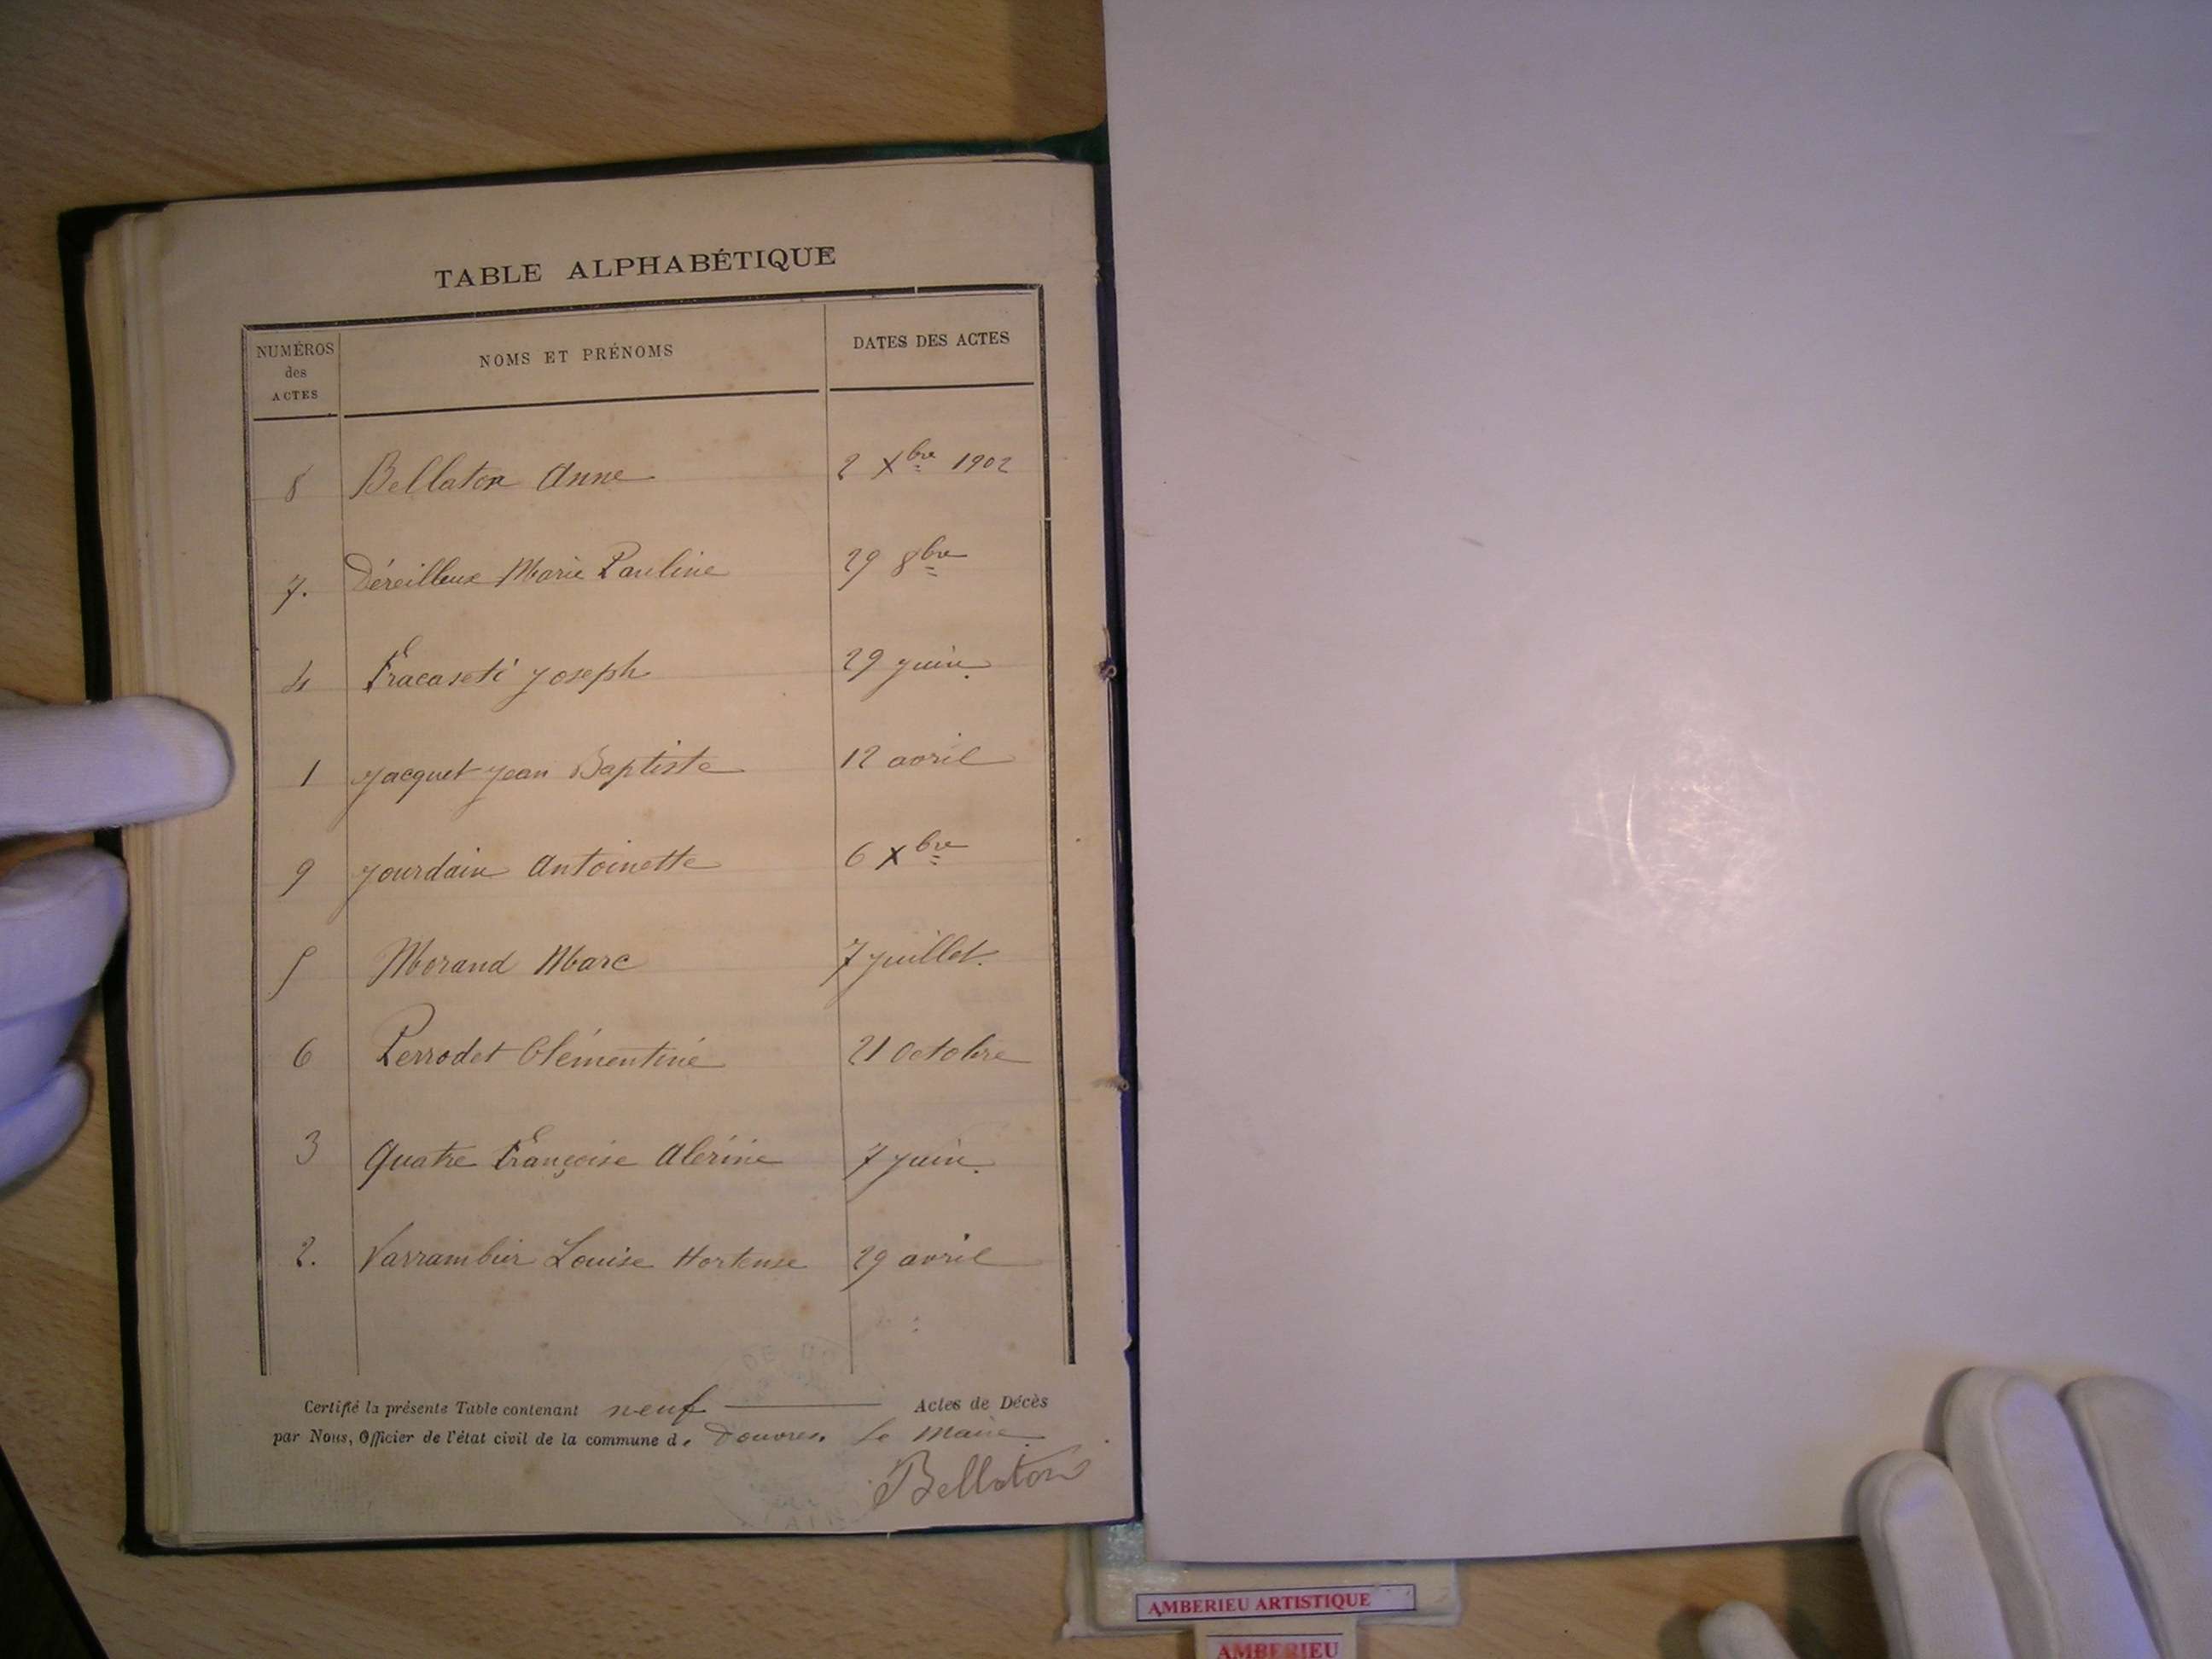 TABLE ALPHABÉTIQUE
NUMÉROS des ACTES NOMS ET PRÉNOMS DATES DES ACTES
8 Bellaton Anne 2 Xbre 1902
7. Déreilleux Marie Pauline 29 8bre
4 Fracaseti Joseph 29 juin.
1 Jacquet Jean Baptiste 12 avril
9 Jourdain Antoinette 6 Xbre
5 Morand Marc 7 juillet.
6 Perrodet Clémentine 21 Octobre
3 Quatre Françoise Alérine 7 juin.
2. Varrambier Louise Hortense 29 avril
Certifié la présente Table contenant neuf Actes de Décès
par Nous, Officier de l'état civil de la commune de Douvres. Le Maire
Bellaton
AMBERIEU ARTISTIQUE
AMBERIEU